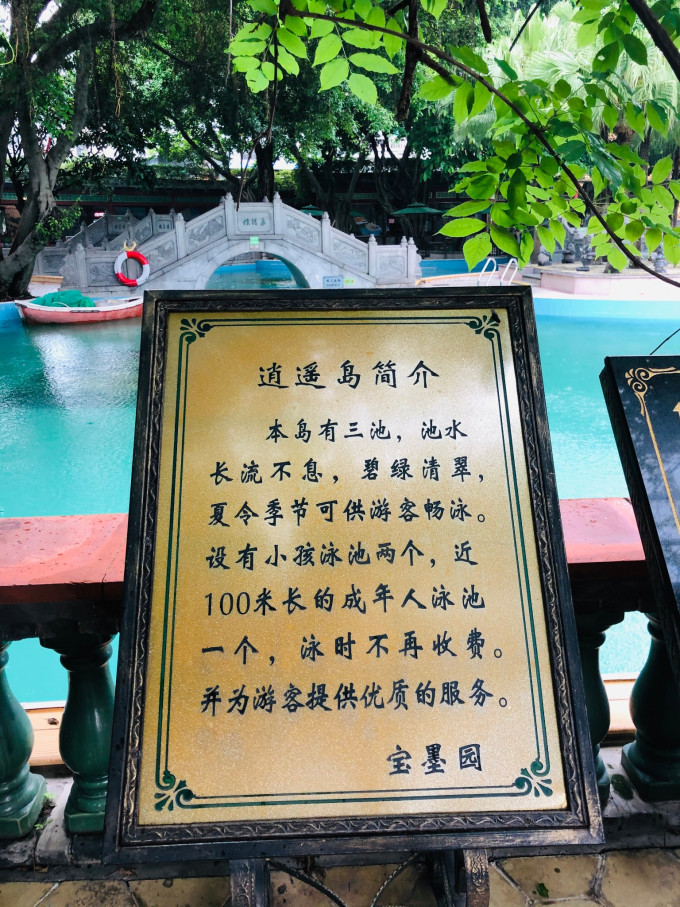 逍遥岛简介
本岛有三池，池水
长流不息，碧绿清翠，
夏令季节可供游客畅泳。
设有小孩泳池两个，近
100米长的成年人泳池
一个，泳时不再收费。
并为游客提供优质的服务。
宝墨园